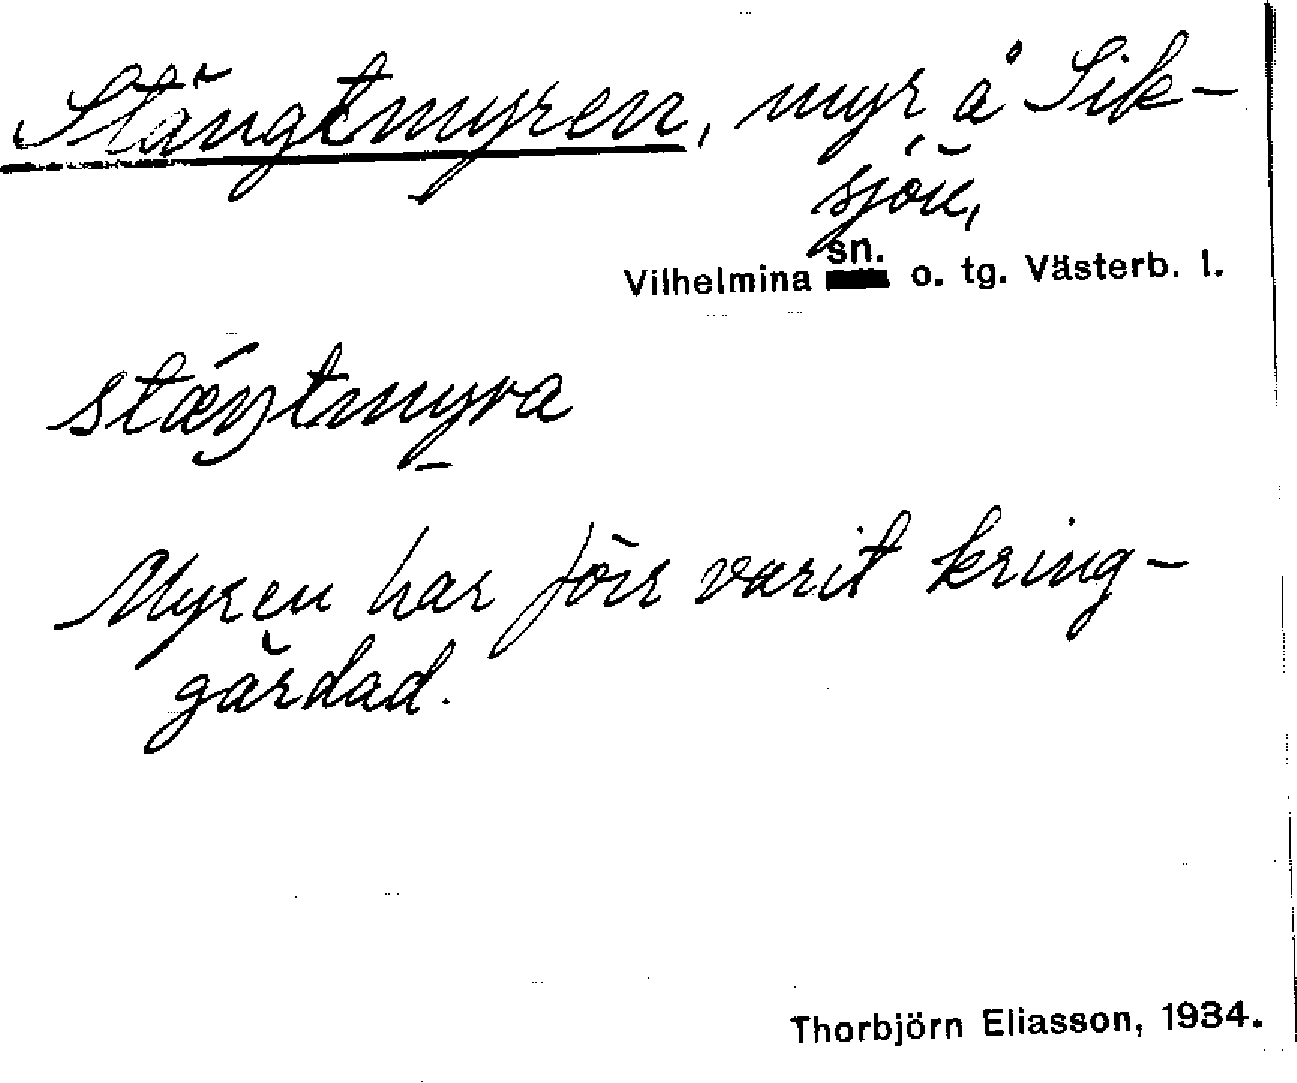 Stängtmyren, myr å Sik-
sjön,
sn.
Vilhelmina o. tg. Västerb. l.
stæŋtmyra
Myren har förr varit kring-
gärdad.
Thorbjörn Eliasson, 1934.